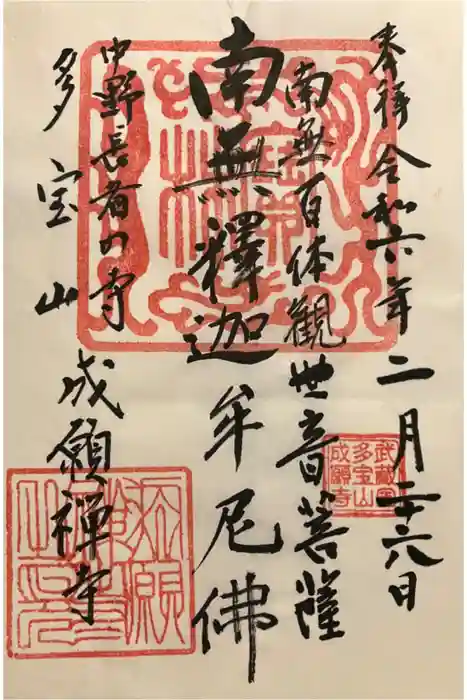 奉拝 令和六年二月二十六日
南無百体観世音菩薩
南無釋迦牟尼佛
中野長者の寺
多宝山 成願禅寺
武蔵国
多宝山
成願寺